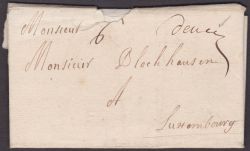 Monsieur
Monsieur Blochhausen
A
Luxembourg